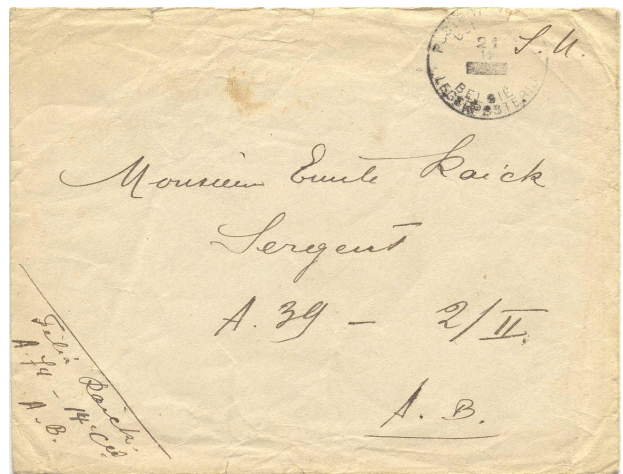 S.M.
21
BELGIË
LEGERPOSTERIJ
Monsieur Emile Raick
Sergent
A. 39 – 2/II.
A. B.
Félix Raick.
A. 74 – 14e Cie
A. B.